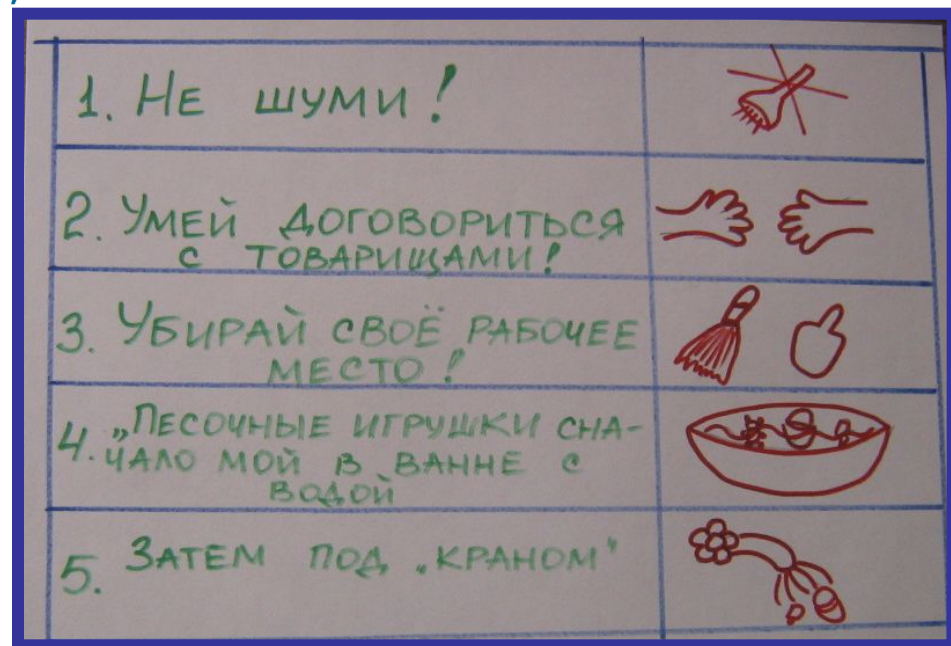 1. НЕ ШУМИ!
2. УМЕЙ ДОГОВОРИТЬСЯ
С ТОВАРИЩАМИ!
3. УБИРАЙ СВОЁ РАБОЧЕЕ
МЕСТО!
4. „ПЕСОЧНЫЕ ИГРУШКИ СНА-
ЧАЛО МОЙ В ВАННЕ С
ВОДОЙ
5. ЗАТЕМ ПОД „КРАНОМ"